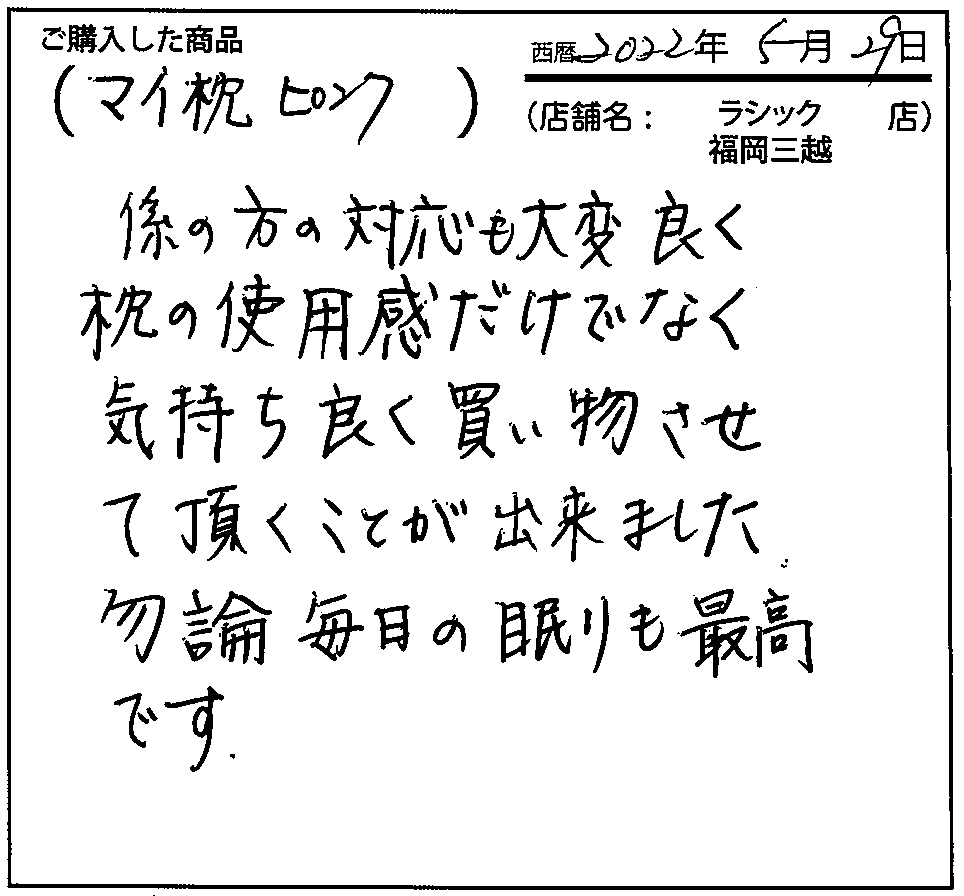 ご購入した商品
西暦 2022年 5月 29日
(マイ枕 ピロンク )
(店舗名: ラシック 店)
福岡三越
係の方の対応も大変良く
枕の使用感だけでなく
気持ち良く買い物させ
て頂くことが出来ました.
勿論毎日の眠りも最高
です.